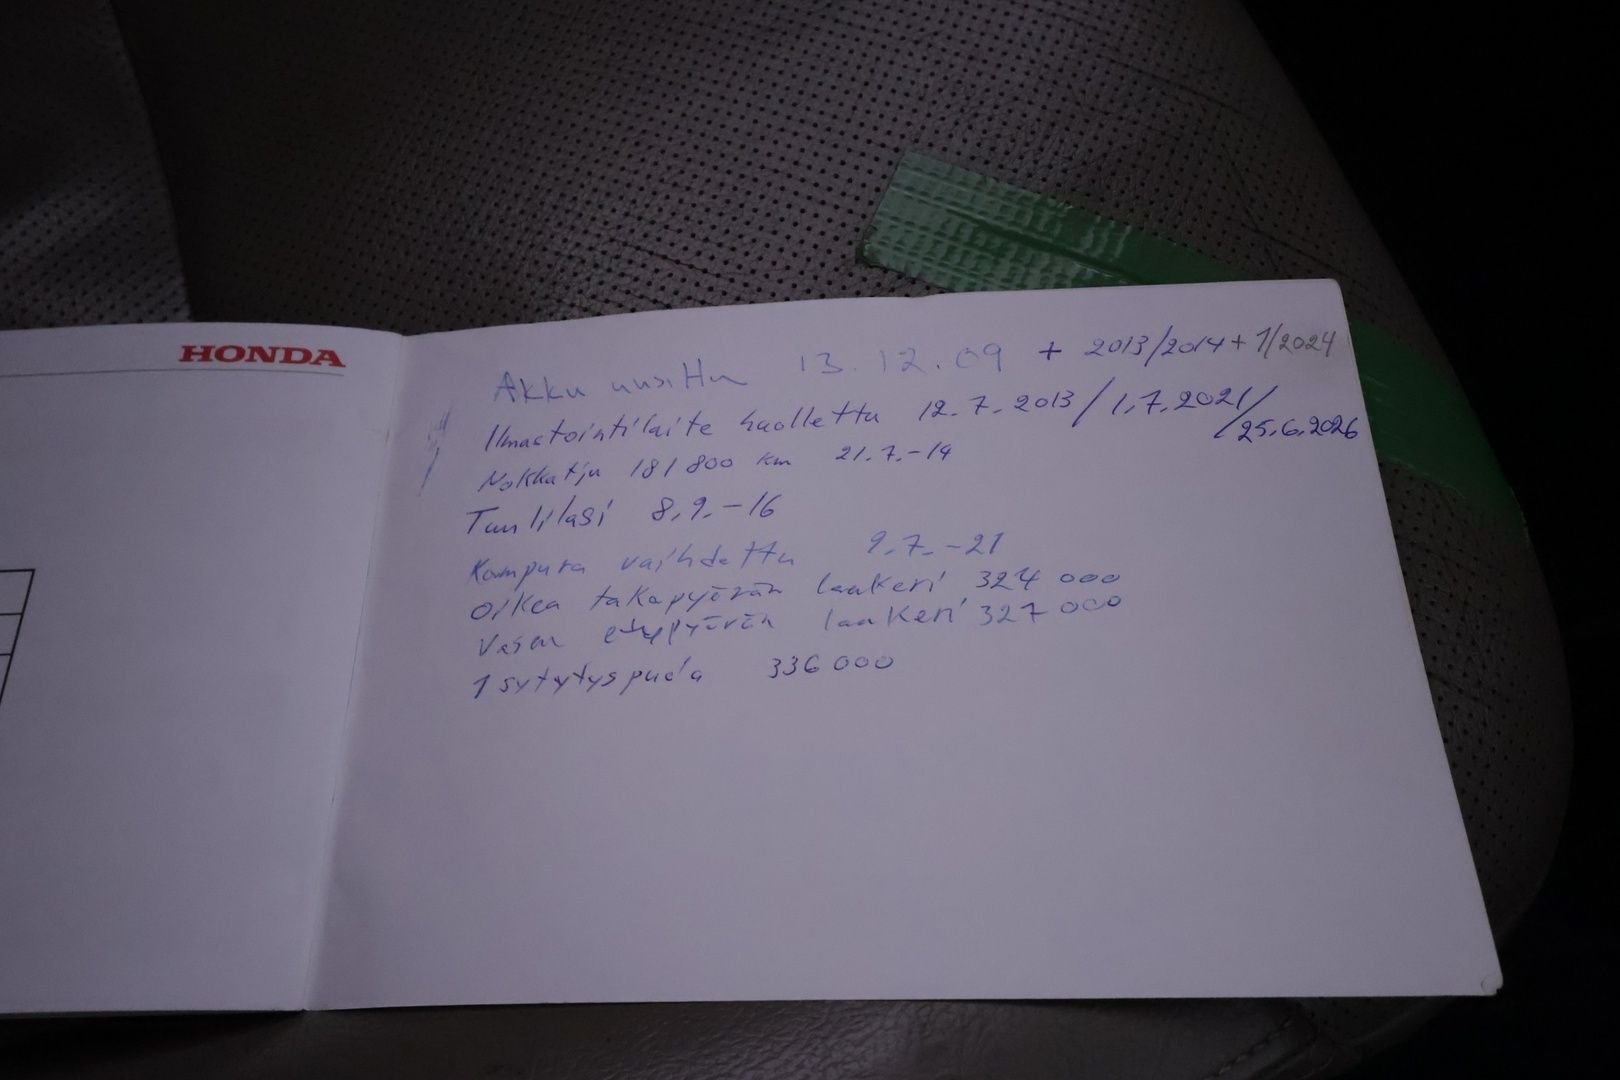 HONDA
Akku uusittu 13.12.09 + 2013/2014 + 1/2024
Ilmastointilaite huollettu 12.7.2013/1.7.2021/
/25.6.2026
181 800 km 21.7.-14
Tuulilasi 8.9.-16
Kompura vaihdettu 9.7.-21
Oikea takapyörän laakeri 324 000
Vasen etupyörän laakeri 327 000
1 sytytyspuola 336 000